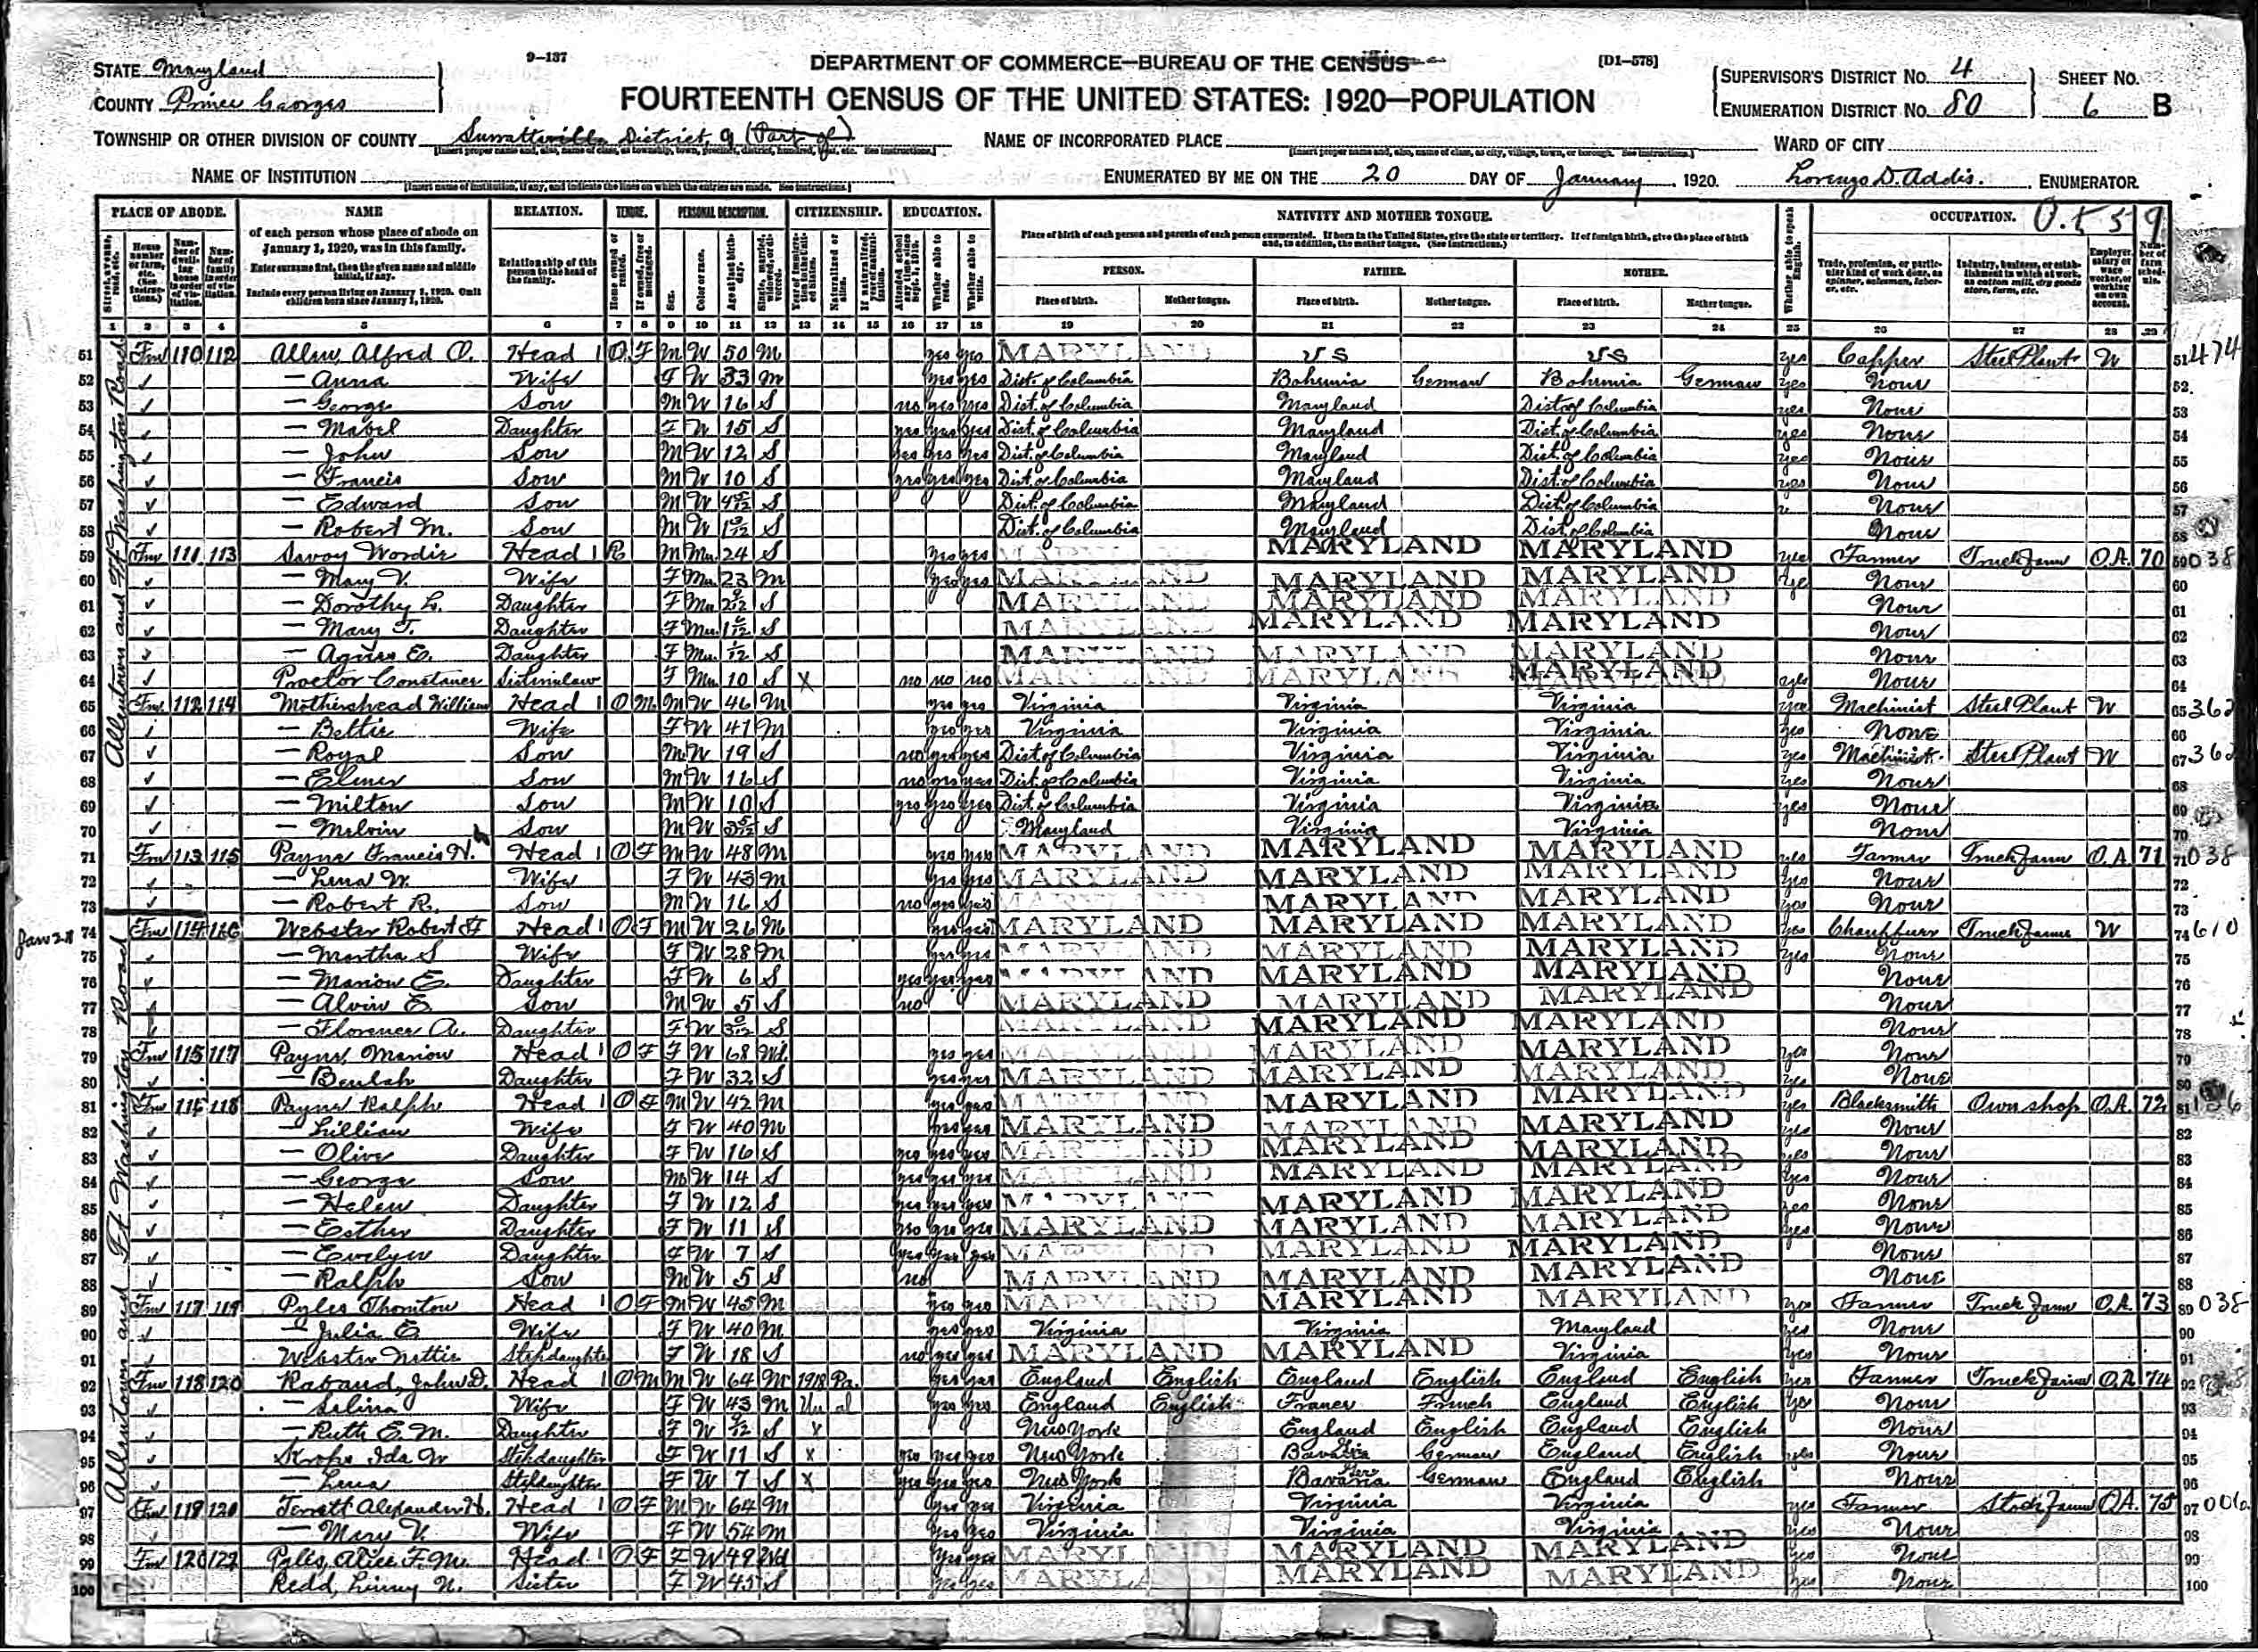 9-137
DEPARTMENT OF COMMERCE—BUREAU OF THE CENSUS
[D1-578]
STATE Maryland
COUNTY Prince Georges
FOURTEENTH CENSUS OF THE UNITED STATES: 1920—POPULATION
SUPERVISOR'S DISTRICT No. 4
ENUMERATION DISTRICT No. 80
SHEET No. 6 B
TOWNSHIP OR OTHER DIVISION OF COUNTY Surrattsville District 9 (Part of)
NAME OF INCORPORATED PLACE
WARD OF CITY
NAME OF INSTITUTION
ENUMERATED BY ME ON THE 20 DAY OF January, 1920. Lorenzo D. Addis. ENUMERATOR.
PLACE OF ABODE. NAME RELATION. TENURE. PERSONAL DESCRIPTION. CITIZENSHIP. EDUCATION. NATIVITY AND MOTHER TONGUE. OCCUPATION.
of each person whose place of abode on January 1, 1920, was in this family.
Enter surname first, then the given name and middle initial, if any.
Include every person living on January 1, 1920. Omit children born since January 1, 1920.
Relationship of this person to the head of the family.
PERSON. FATHER. MOTHER.
Place of birth. Mother tongue. Place of birth. Mother tongue. Place of birth. Mother tongue.
1 2 3 4 5 6 7 8 9 10 11 12 13 14 15 16 17 18 19 20 21 22 23 24 25 26 27 28 29
Allentown and Ft Washington Road
51 Fm 110 112 Allen, Alfred O. Head 1 O F M W 50 M yes yes MARYLAND US US yes Capper Steel Plant W 51 474
52 — Anna Wife F W 33 M yes yes Dist. of Columbia Bohemia German Bohemia German yes None 52
53 — George Son M W 16 S no yes yes Dist. of Columbia Maryland Dist of Columbia yes None 53
54 — Mabel Daughter F W 15 S yes yes yes Dist. of Columbia Maryland Dist. of Columbia yes None 54
55 — John Son M W 12 S yes yes yes Dist. of Columbia Maryland Dist. of Columbia yes None 55
56 — Francis Son M W 10 S yes yes yes Dist. of Columbia Maryland Dist. of Columbia yes None 56
57 — Edward Son M W S Dist. of Columbia Maryland Dist. of Columbia None 57
58 — Robert M. Son M W S Dist. of Columbia Maryland Dist. of Columbia None 58
59 Fm 111 113 Savoy Wordie Head 1 R M Mu 24 S yes yes MARYLAND MARYLAND MARYLAND yes Farmer Truck Farm O.A. 70 59 038
60 — Mary V. Wife F Mu 23 M yes yes MARYLAND MARYLAND MARYLAND yes None 60
61 — Dorothy L. Daughter F Mu S MARYLAND MARYLAND MARYLAND None 61
62 — Mary T. Daughter F Mu S MARYLAND MARYLAND MARYLAND None 62
63 — Agnes E. Daughter F Mu S MARYLAND MARYLAND MARYLAND None 63
64 Proctor Constance Sisterinlaw F Mu 10 S X no no no MARYLAND MARYLAND MARYLAND yes None 64
65 Fm 112 114 Mothershead William Head 1 O M M W 46 M yes yes Virginia Virginia Virginia yes Machinist Steel Plant W 65 362
66 — Bettie Wife F W 41 M yes yes Virginia Virginia Virginia yes None 66
67 — Royal Son M W 19 S no yes yes Dist of Columbia Virginia Virginia yes Machinist Steel Plant W 67 362
68 — Elmer Son M W 16 S no yes yes Dist of Columbia Virginia Virginia yes None 68
69 — Milton Son M W 10 S yes yes yes Dist. of Columbia Virginia Virginia yes None 69
70 — Melvin Son M W S Maryland Virginia Virginia None 70
71 Fm 113 115 Payne Francis H. Head 1 O F M W 48 M yes yes MARYLAND MARYLAND MARYLAND yes Farmer Truck Farm O.A 71 71 038
72 — Lena W. Wife F W 43 M yes yes MARYLAND MARYLAND MARYLAND yes None 72
73 — Robert R. Son M W 16 S no yes yes MARYLAND MARYLAND MARYLAND yes None 73
Jan 21 74 Fm 114 116 Webster Robert F Head 1 O F M W 26 M yes yes MARYLAND MARYLAND MARYLAND yes Chauffeur Truck Farm W 74 610
75 — Martha S Wife F W 28 M yes yes MARYLAND MARYLAND MARYLAND yes None 75
76 — Marion E. Daughter F W 6 S yes yes yes MARYLAND MARYLAND MARYLAND None 76
77 — Alvin E. Son M W 5 S no MARYLAND MARYLAND MARYLAND None 77
78 — Florence A. Daughter F W S MARYLAND MARYLAND MARYLAND None 78
Allentown and Ft Washington Road
79 Fm 115 117 Payne, Marion Head 1 O F F W 68 Wd yes yes MARYLAND MARYLAND MARYLAND yes None 79
80 — Beulah Daughter F W 32 S yes yes MARYLAND MARYLAND MARYLAND yes None 80
81 Fm 116 118 Payne Ralph Head 1 O F M W 42 M yes yes MARYLAND MARYLAND MARYLAND yes Blacksmith Own shop O.A. 72 81
82 — Lillian Wife F W 40 M yes yes MARYLAND MARYLAND MARYLAND yes None 82
83 — Olive Daughter F W 16 S yes yes yes MARYLAND MARYLAND MARYLAND yes None 83
84 — George Son M W 14 S yes yes yes MARYLAND MARYLAND MARYLAND yes None 84
85 — Helen Daughter F W 12 S yes yes yes MARYLAND MARYLAND MARYLAND yes None 85
86 — Esther Daughter F W 11 S yes yes yes MARYLAND MARYLAND MARYLAND yes None 86
87 — Evelyn Daughter F W 7 S yes yes yes MARYLAND MARYLAND MARYLAND None 87
88 — Ralph Son M W 5 S no MARYLAND MARYLAND MARYLAND None 88
89 Fm 117 119 Pyles Thornton Head 1 O F M W 45 M yes yes MARYLAND MARYLAND MARYLAND yes Farmer Truck Farm O.A. 73 89 038
90 — Julia E. Wife F W 40 M yes yes Virginia Virginia Maryland yes None 90
91 Webster Nettie Stepdaughter F W 18 S no yes yes MARYLAND MARYLAND Virginia yes None 91
92 Fm 118 120 Raband, John D. Head 1 O M M W 64 M 1918 Pa. yes yes England English England English England English yes Farmer Truck Farm O.A. 74 92
93 — Selina Wife F W 43 M Un al yes yes England English France French England English yes None 93
94 — Ruth E. M. Daughter F W S X New York England English England English None 94
95 Krohs Ida W Stepdaughter F W 11 S X yes yes yes New York Bavaria German England English yes None 95
96 — Lena Stepdaughter F W 7 S X yes yes yes New York Bavaria German England English None 96
97 Fm 119 120 Terrett Alexander H. Head 1 O F M W 64 M yes yes Virginia Virginia Virginia yes Farmer Stock Farm O.A. 75 97
98 — Mary V. Wife F W 54 M yes yes Virginia Virginia Virginia yes None 98
99 Fm 120 122 Pyles, Alice F. M. Head 1 O F F W 49 Wd yes yes MARYLAND MARYLAND MARYLAND yes None 99
100 Redd, Linny N. Sister F W 45 S yes yes MARYLAND MARYLAND MARYLAND yes None 100